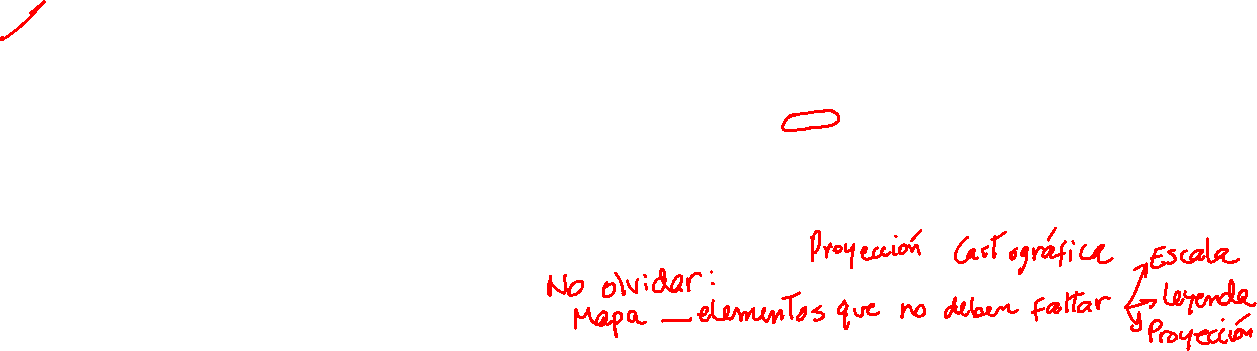 Proyección Cartográfica
No olvidar:
Mapa — elementos que no deben faltar
Escala
Leyenda
Proyección